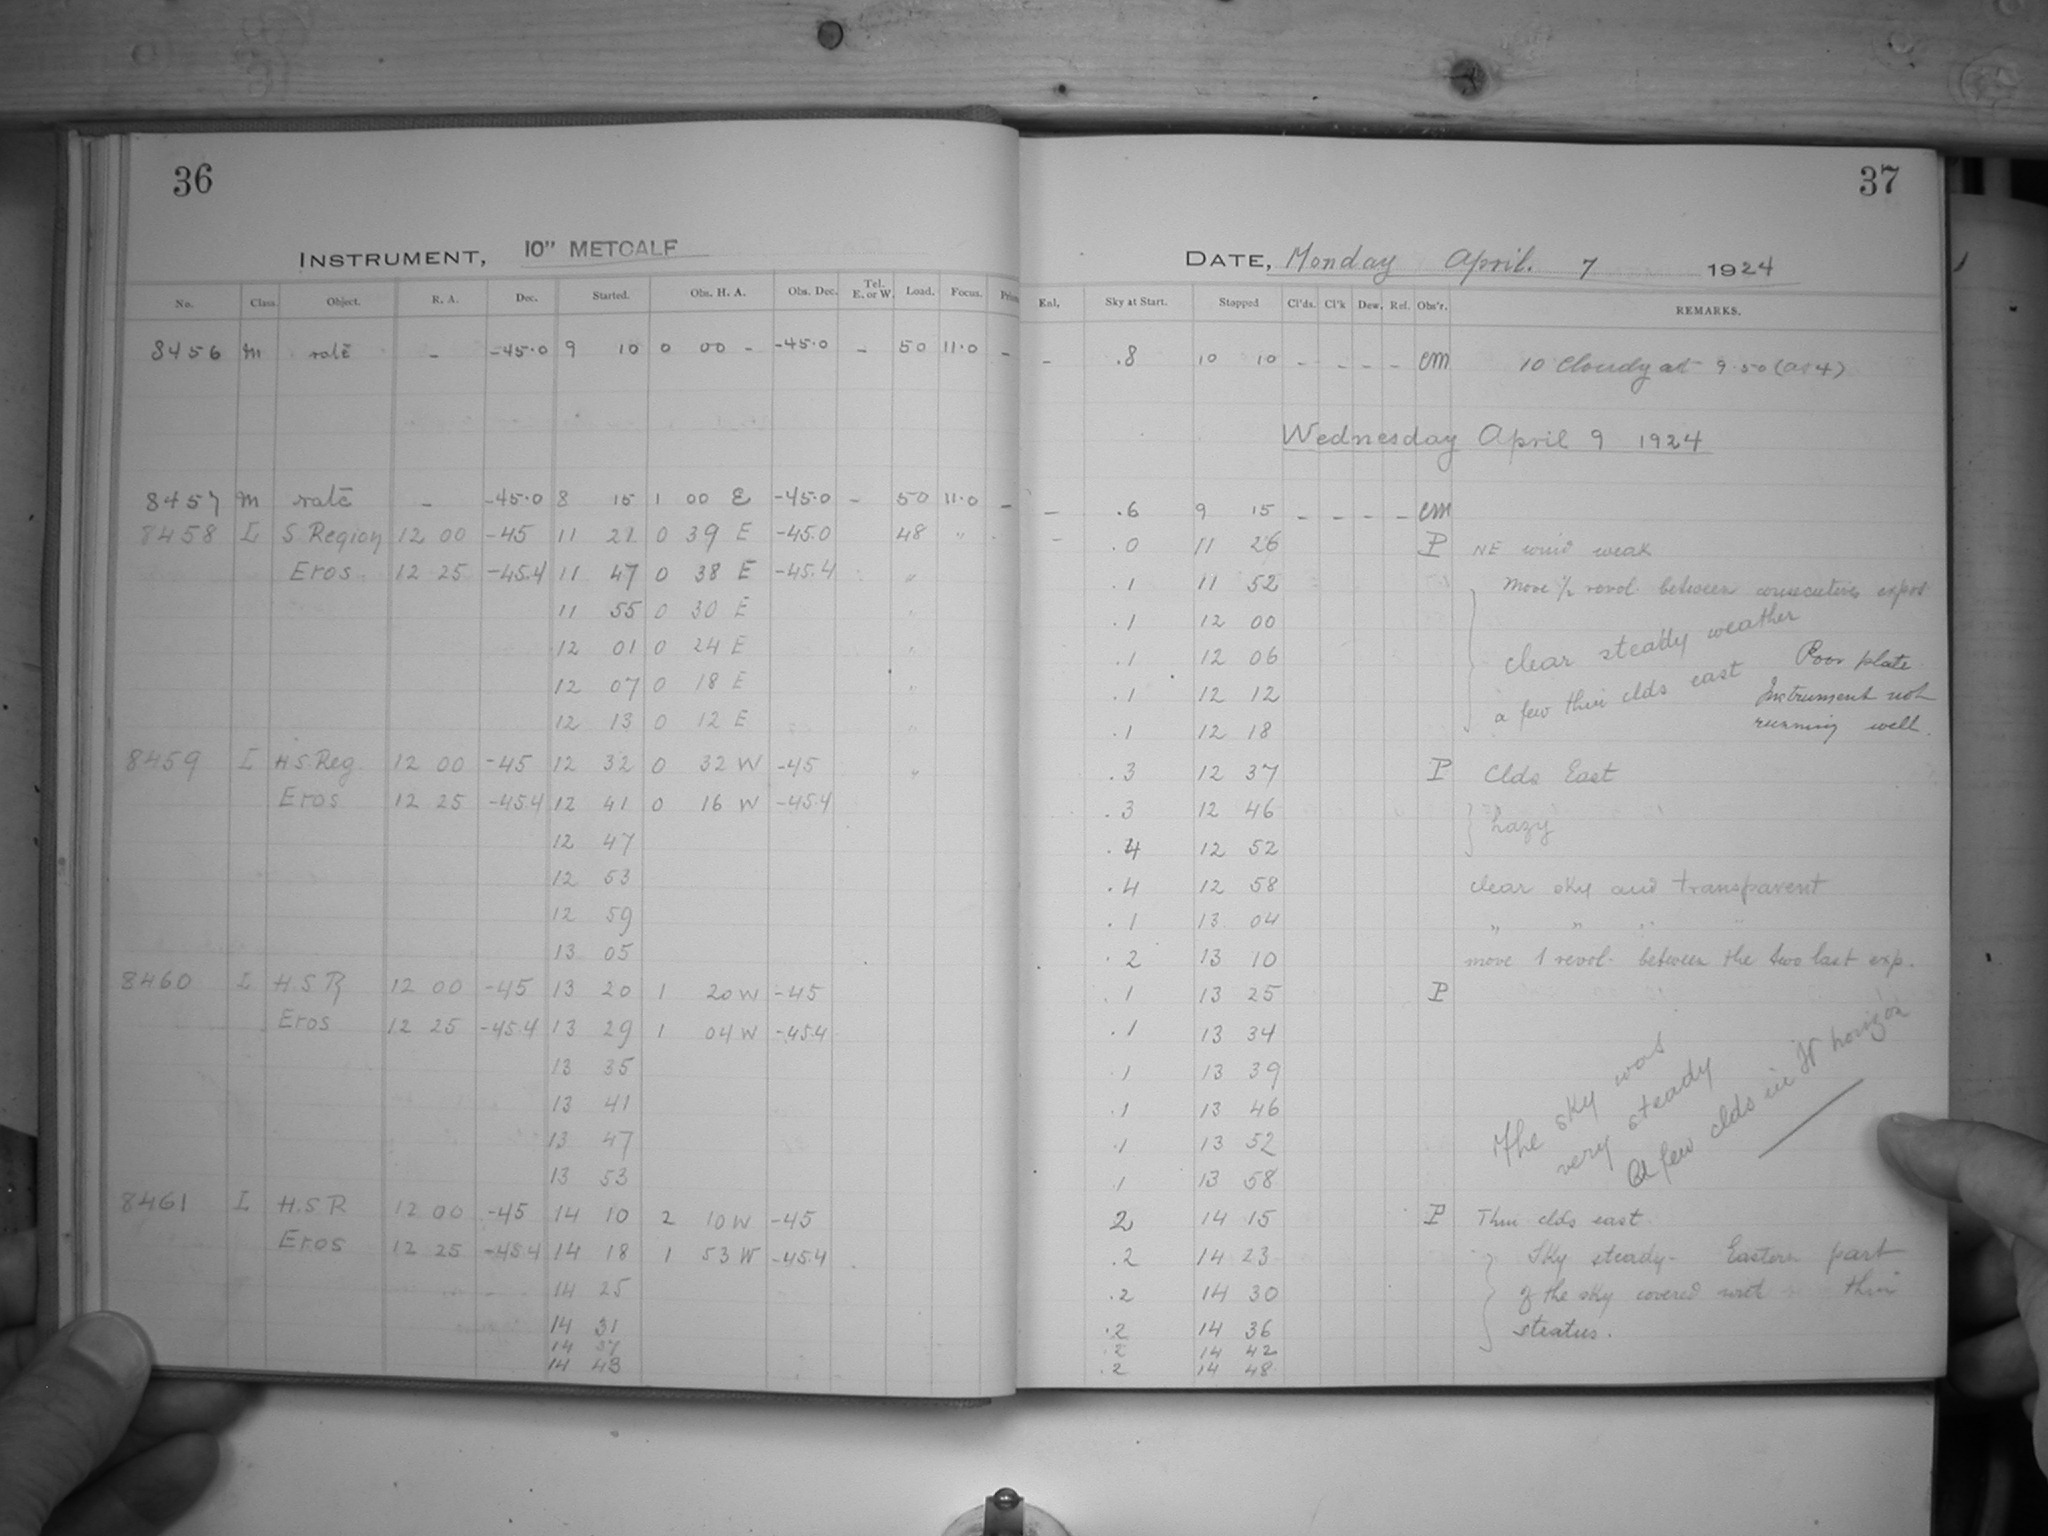 36
37
INSTRUMENT, 10" METCALF
DATE, Monday April. 7 1924
No. Class. Object. R. A. Dec. Started. Obs. H. A. Obs. Dec. Tel. E. or W. Load. Focus. Enl. Sky at Start. Stopped Cl'ds. Cl'k Dew. Ref. Obs'r. REMARKS.
8456 m rate - -45.0 9 10 0 00 - -45.0 - 50 11.0 - - .8 10 10 - - - - cm 10 Cloudy at 9.50 (as 4)
Wednesday April 9 1924
8457 m rate - -45.0 8 15 1 00 E -45.0 - 50 11.0 - - .6 9 15 - - - - cm
8458 I S Region 12 00 -45 11 21 0 39 E -45.0 48 " - .0 11 26 P NE wind weak
Eros 12 25 -45.4 11 47 0 38 E -45.4 " .1 11 52 move 1/2 revol. between consecutive expos
11 55 0 30 E " .1 12 00
12 01 0 24 E " .1 12 06 clear steady weather
12 07 0 18 E " .1 12 12 a few thin clds east Poor plate
12 13 0 12 E " .1 12 18 Instrument not running well.
8459 I H S. Reg. 12 00 -45 12 32 0 32 W -45 " .3 12 37 P Clds East
Eros 12 25 -45.4 12 41 0 16 W -45.4 .3 12 46 hazy
12 47 .4 12 52
12 53 .4 12 58 clear sky and transparent
12 59 .1 13 04 " " " "
13 05 .2 13 10 move 1 revol. between the two last exp.
8460 I H S R 12 00 -45 13 20 1 20 W -45 .1 13 25 P
Eros 12 25 -45.4 13 29 1 04 W -45.4 .1 13 34
13 35 .1 13 39
13 41 .1 13 46 The sky was
13 47 .1 13 52 very steady
13 53 .1 13 58 A few clds in W horizon
8461 I H.S R 12 00 -45 14 10 2 10 W -45 2 14 15 P Thin clds east.
Eros 12 25 -45.4 14 18 1 53 W -45.4 .2 14 23 Sky steady - Eastern part
14 25 .2 14 30 of the sky covered with thin
14 31 .2 14 36 stratus.
14 37 .2 14 42
14 43 .2 14 48